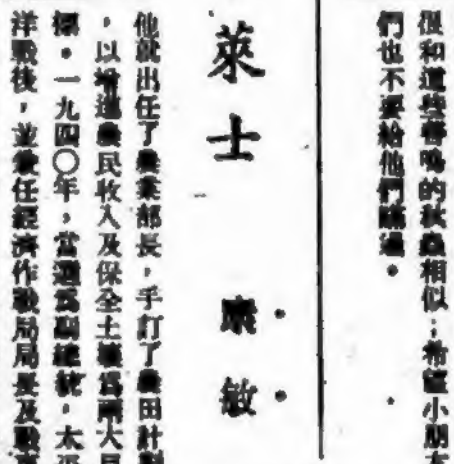 很和這些善鳴的秋蟲相似；希望小朋友
們也不要給他們瞞過。
萊士
康敏
他就出任了農業部長，手訂了農田計劃
，以增進農民收入及保全土壤為兩大目
標。一九四〇年，當選為副總統，太平
洋戰後，並兼任經濟作戰局局長及戰